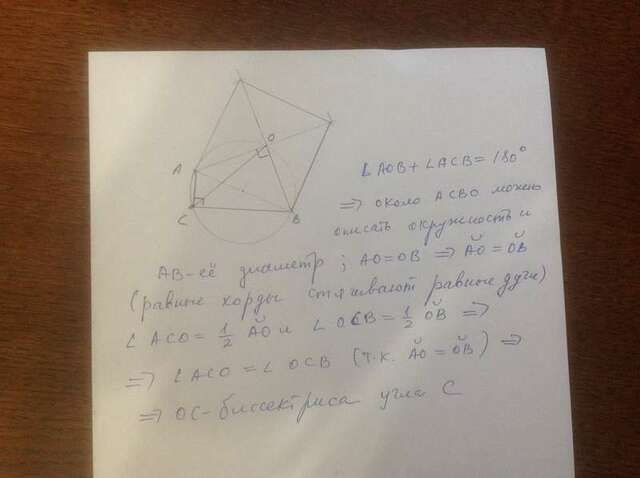 O
A
C
B
∠AOB + ∠ACB = 180°
⇒ около ACBO можно
описать окружность и
AB - её диаметр ; AO = OB ⇒ A͝O = O͝B
(равные хорды стягивают равные дуги)
∠ACO = 1/2 A͝O и ∠OCB = 1/2 O͝B ⇒
⇒ ∠ACO = ∠OCB (т.к. A͝O = O͝B) ⇒
⇒ OC - биссектриса угла C